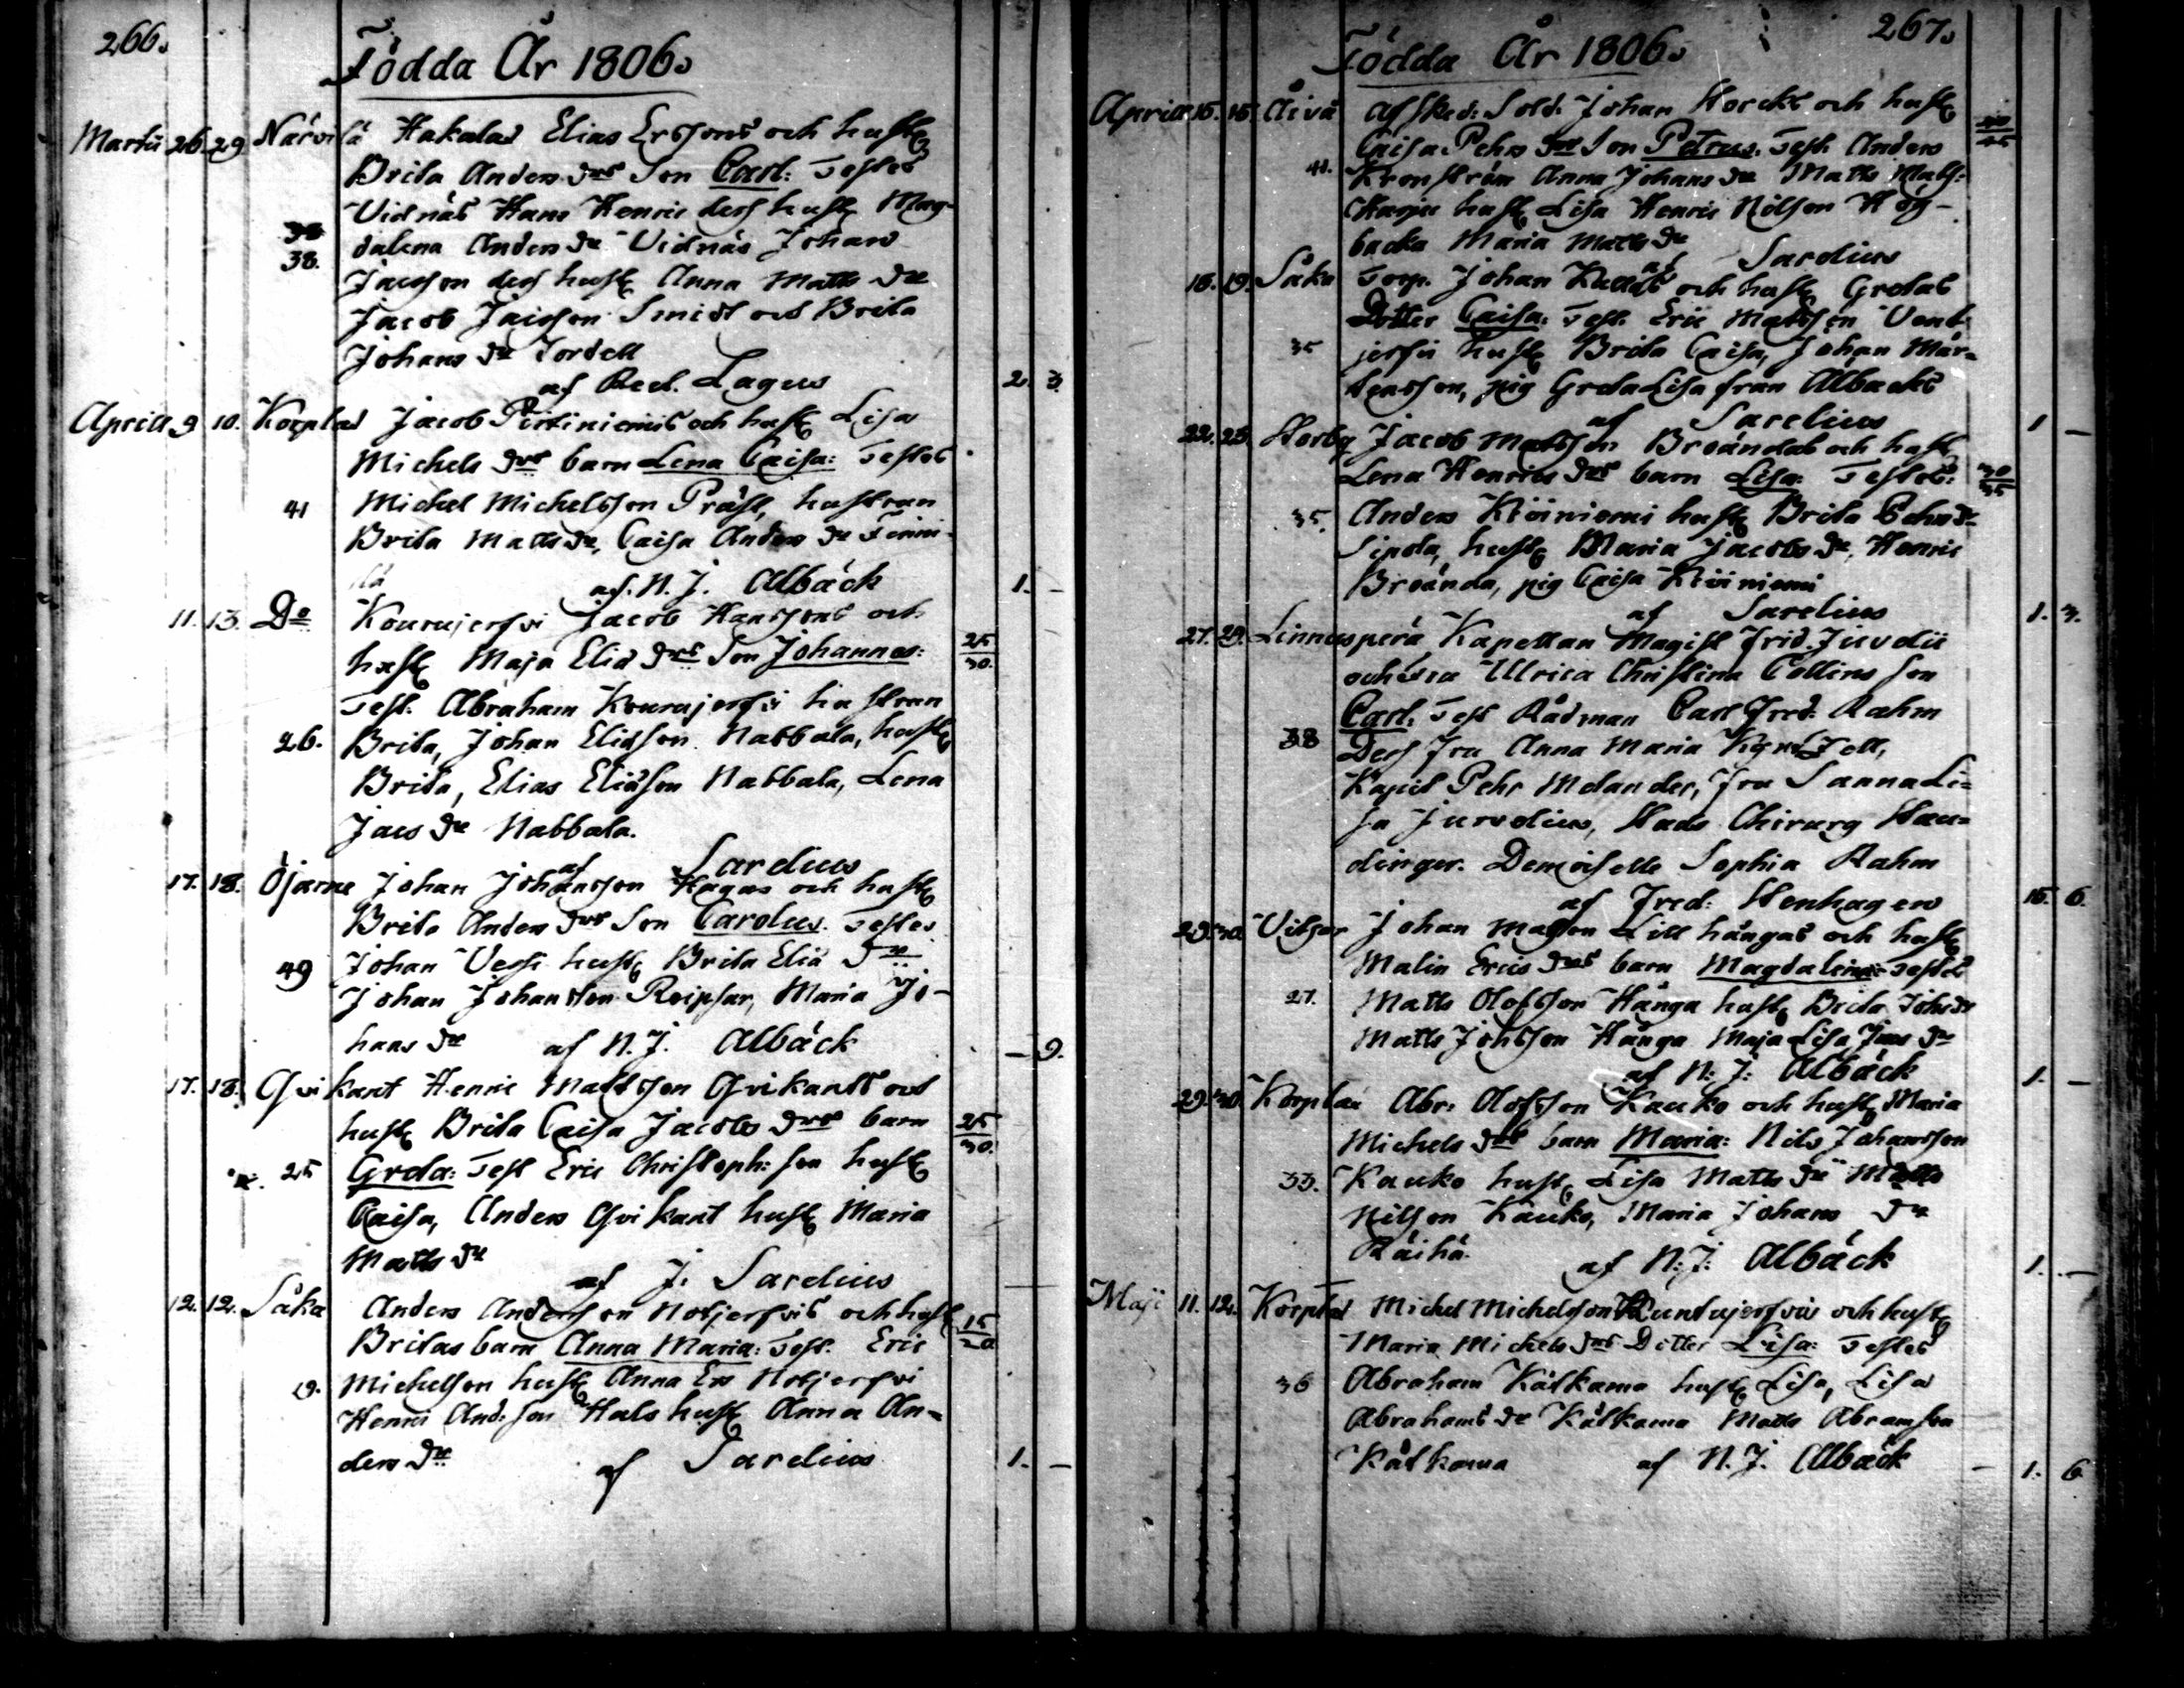 266.
Födda År 1806.
Martii 26. 29 Närvilä Hakalas Elias Erssons och hust
Brita Anders drs Son Carl: Testes
Vidnäs Hans Henric dess hust Mag-
38. dalena Anders dr Vidnäs Johan
Jacsson dess hust Anna Matts dr
Jacob Jacsson Smidt och Brita
Johans dr Tordell
af Lagus 2. 3.
Aprill 9 10. Korplax Jacob och hust Lisa
Michels drs barn Lena Caisa: Testes
41 Michel Michelsson Präst, hustrun
Brita Matts dr, Caisa Anders dr
af. N. J. Albäck 1. –
11. 13. Do Kourujerfvi Jacob Hanssons och
hust Maja Elia drs Son Johannes: 25/30.
Test. Abraham Kourujerfvi hustrun
26. Brita, Johan Eliasson Nabbala, hust
Brita, Elias Eliasson Nabbala, Lena
Jacs dr Nabbala.
af Sarelius
17. 18. Öjarne Johan Johansson Hagas och hust
Brita Anders drs Son Carolus. Testes
49 Johan hust Brita Elia dr
Johan Johansson Roipsar, Maria Jo-
hans dr af N. J. Albäck – 9.
17. 18. Qvikant Henric Mattsson Qvikants och
hust Brita Caisa Jacobs drs barn 25/30.
25 Greta: Test Eric Christoph: son hust
Caisa, Anders Qvikant hust Maria
Matts dr
af J. Sarelius
12. 12. Såka Anders Andersson och hust 15/20
Britas barn Anna Maria: Test. Eric
19. Michelsson hust Anna Ers
Henric And: son Hals hust Anna An-
ders dr af Sarelius 1. –
267.
Födda År 1806.
Aprill 15. 16. Åivo Afsked: Sold: Johan Storcks och hust
Caisa Pehrs drs Son Petrus. Test Anders
41. Kronström Anna Johans dr Matts Matts:
hust Lisa Henric Nilsson Hög-
backa Maria Matts dr
af Sarelius
18. 19. Såka Torp. Johan och hust Gretas
Dotter Caisa: Test. Eric Mattsson Vent-
35 jerfvi hust Brita Caisa, Johan Mår-
tensson, pig Greta Lisa från Albacks
af Sarelius 1 –
22. 23. Storby Jacob Mattsson Broändas och hust
Lena Henrics drs barn Lisa: Testes: 30/35
35. Anders Kiviniemi hust Brita Pehrs dr
Sipola, hust Maria Jacobs dr, Henric
Broända, pig Caisa Kiviniemi
af Sarelius 1. 3.
27. 29. Linnusperä Kapellan Magist Frid. Juvelii
och fru Ulrica Christina Collins son
Carl: Test Rådman Carl Fred: Rahm
38 Dess Fru Anna Maria
Kapit Pehr Melander, Fru Sanna Li-
sa Juvelius, Stads Chirurg Hau-
dinger. Demoiselle Sophia Rahm
af Fred: Stenhagen 15. 6.
29. 30. Vitsar Johan Matsson Lill hångas och hust
Malin Erics drs barn Magdalena: Testes
27. Matts Olofsson Hånga hust Brita Johs dr
Matts Johsson Hånga Maja Lisa Jacs dr
af N: J: Albäck 1. –
29. 30. Korplax Abr: Olofsson Kauko och hust Maria
Michels drs barn Maria: Nils Johansson
33. Kauko hust Lisa Matts dr Matts
Nilsson Kauko, Maria Johans dr
Räihä. af N: J: Albäck 1. –
Maji 11. 12. Korplax Michel Michelsson och hust
Maria Michels drs Dotter Lisa: Testes
36 Abraham Kälkama hust Lisa, Lisa
Abrahams dr Kälkama Matts Abramsson
Kälkama af N. J. Albäck – 1. 6